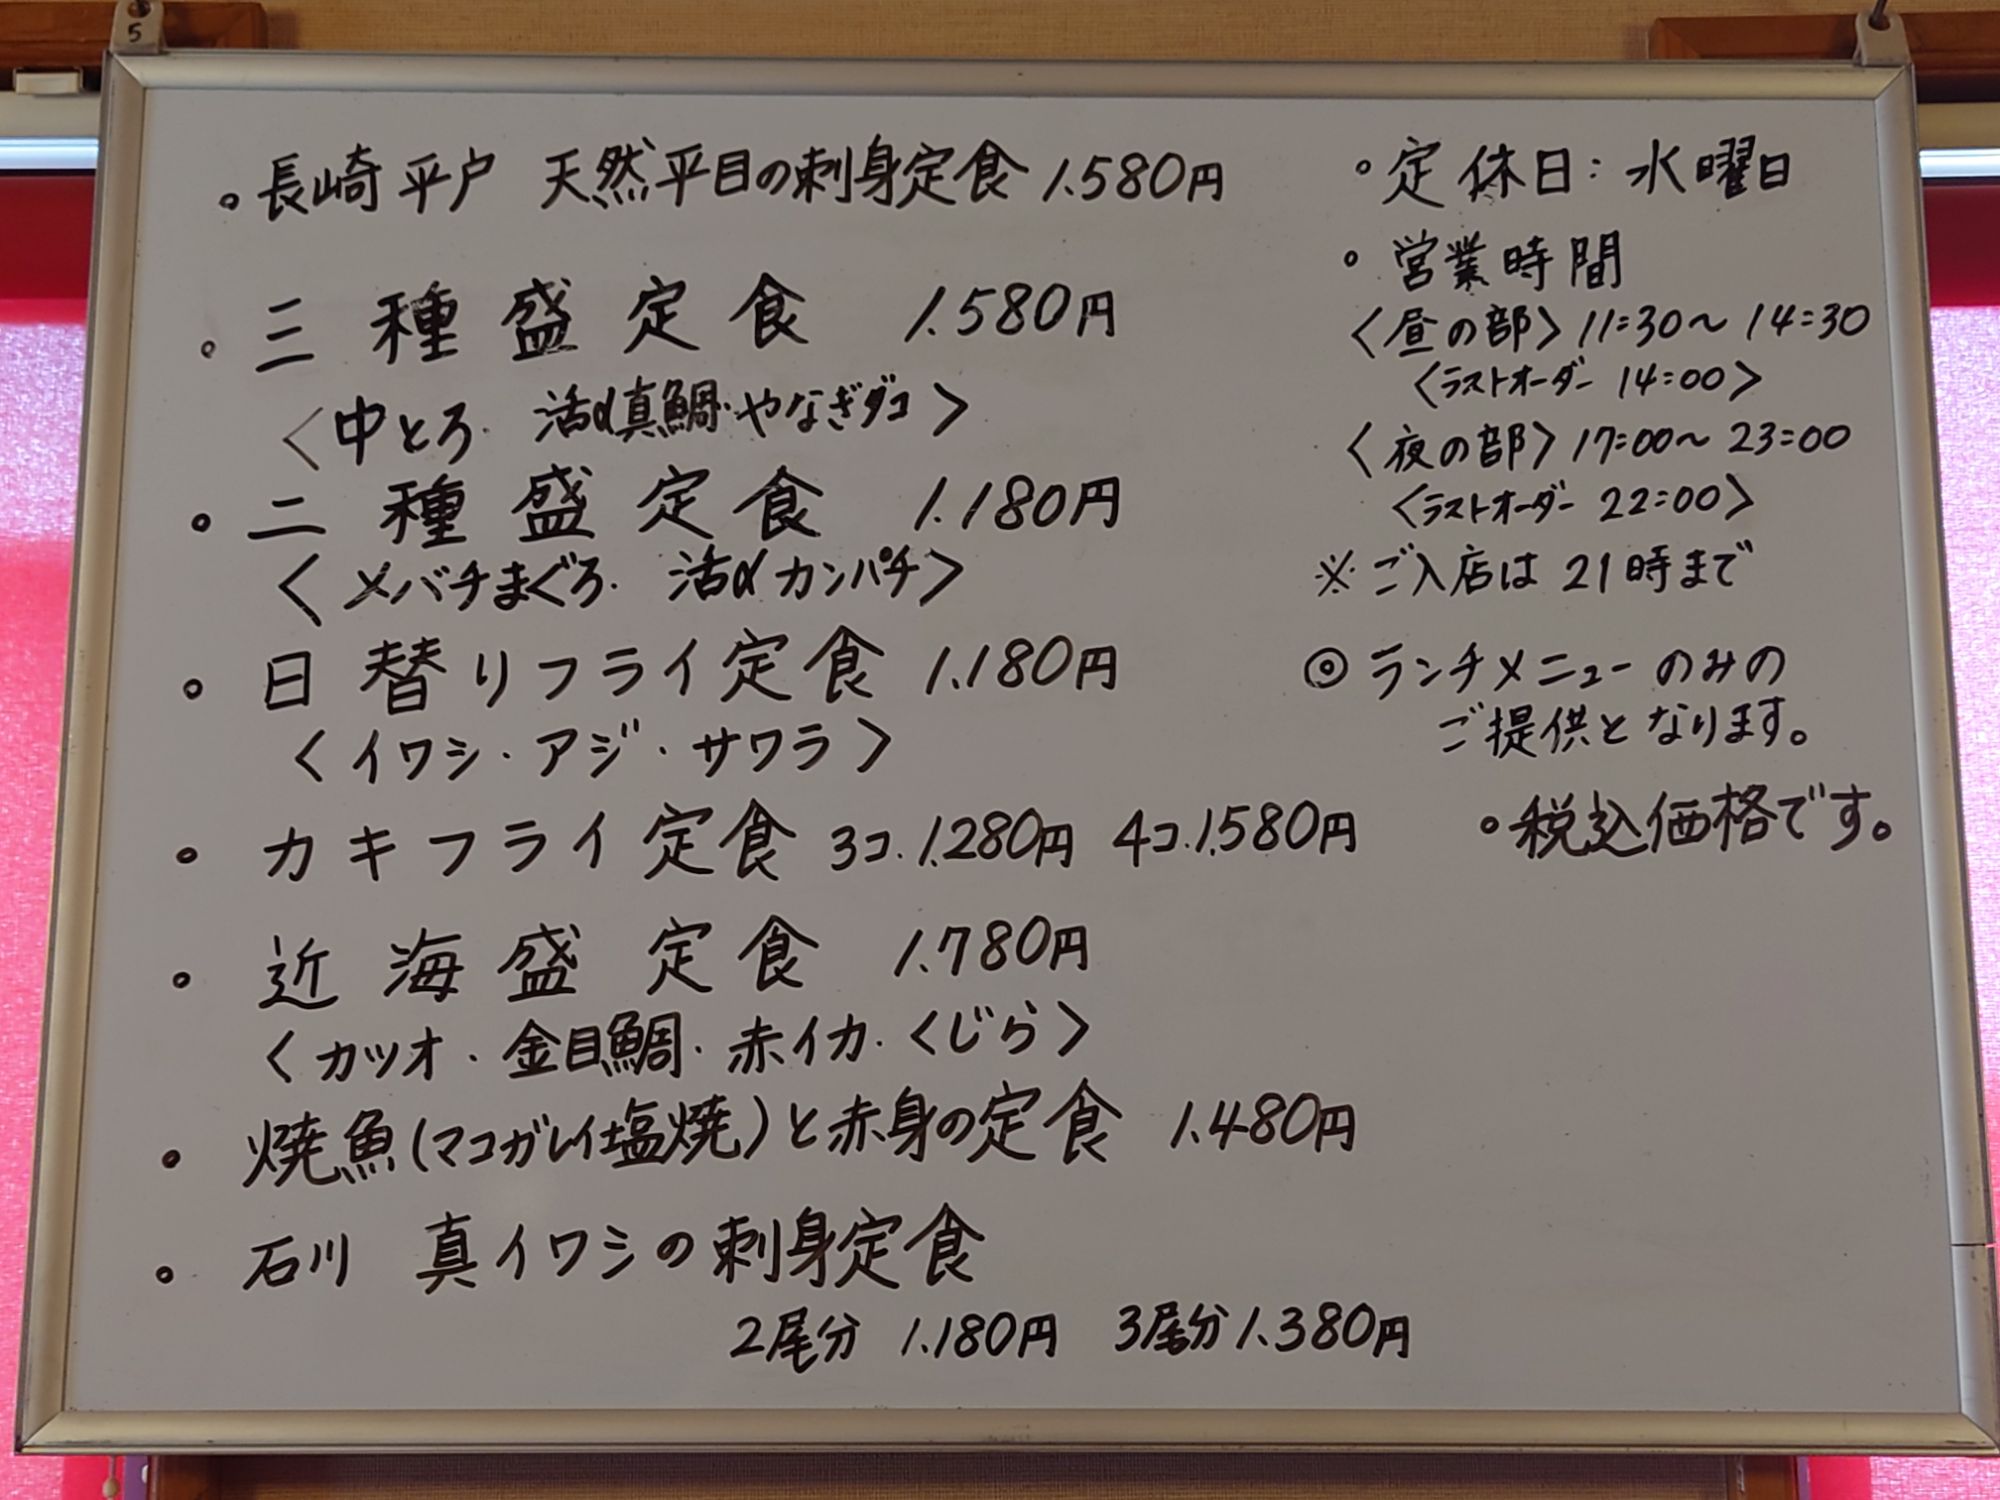 5
。長崎 平戸 天然平目の刺身定食 1.580円
。三種盛定食 1.580円
〈中とろ. 活〆真鯛・やなぎダコ〉
。二種盛定食 1.180円
〈メバチまぐろ. 活〆カンパチ〉
。日替りフライ定食 1.180円
〈イワシ・アジ・サワラ〉
。カキフライ定食 3コ.1.280円 4コ.1.580円
。近海盛定食 1.780円
〈カツオ・金目鯛・赤イカ・くじら〉
。焼魚(マコガレイ塩焼)と赤身の定食 1.480円
。石川 真イワシの刺身定食
2尾分 1.180円 3尾分 1.380円
。定休日:水曜日
。営業時間
〈昼の部〉11:30〜14:30
〈ラストオーダー 14:00〉
〈夜の部〉17:00〜23:00
〈ラストオーダー 22:00〉
※ご入店は21時まで
◎ランチメニューのみの
ご提供となります。
。税込価格です。